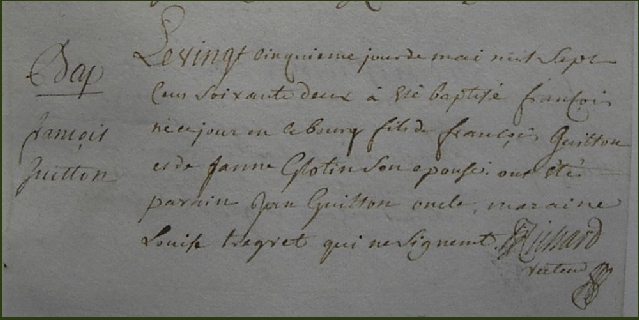 Bap
françois
Guitton
Le vingt cinquieme jour de mai mil sept
Cent soixante deux à été baptisé françois
né ce jour en ce bourg fils de françois Guitton
et de Janne Glotin son epouse. ont été
parain Jean Guitton oncle, maraine
Louise tregret qui ne signent. Richard
recteur